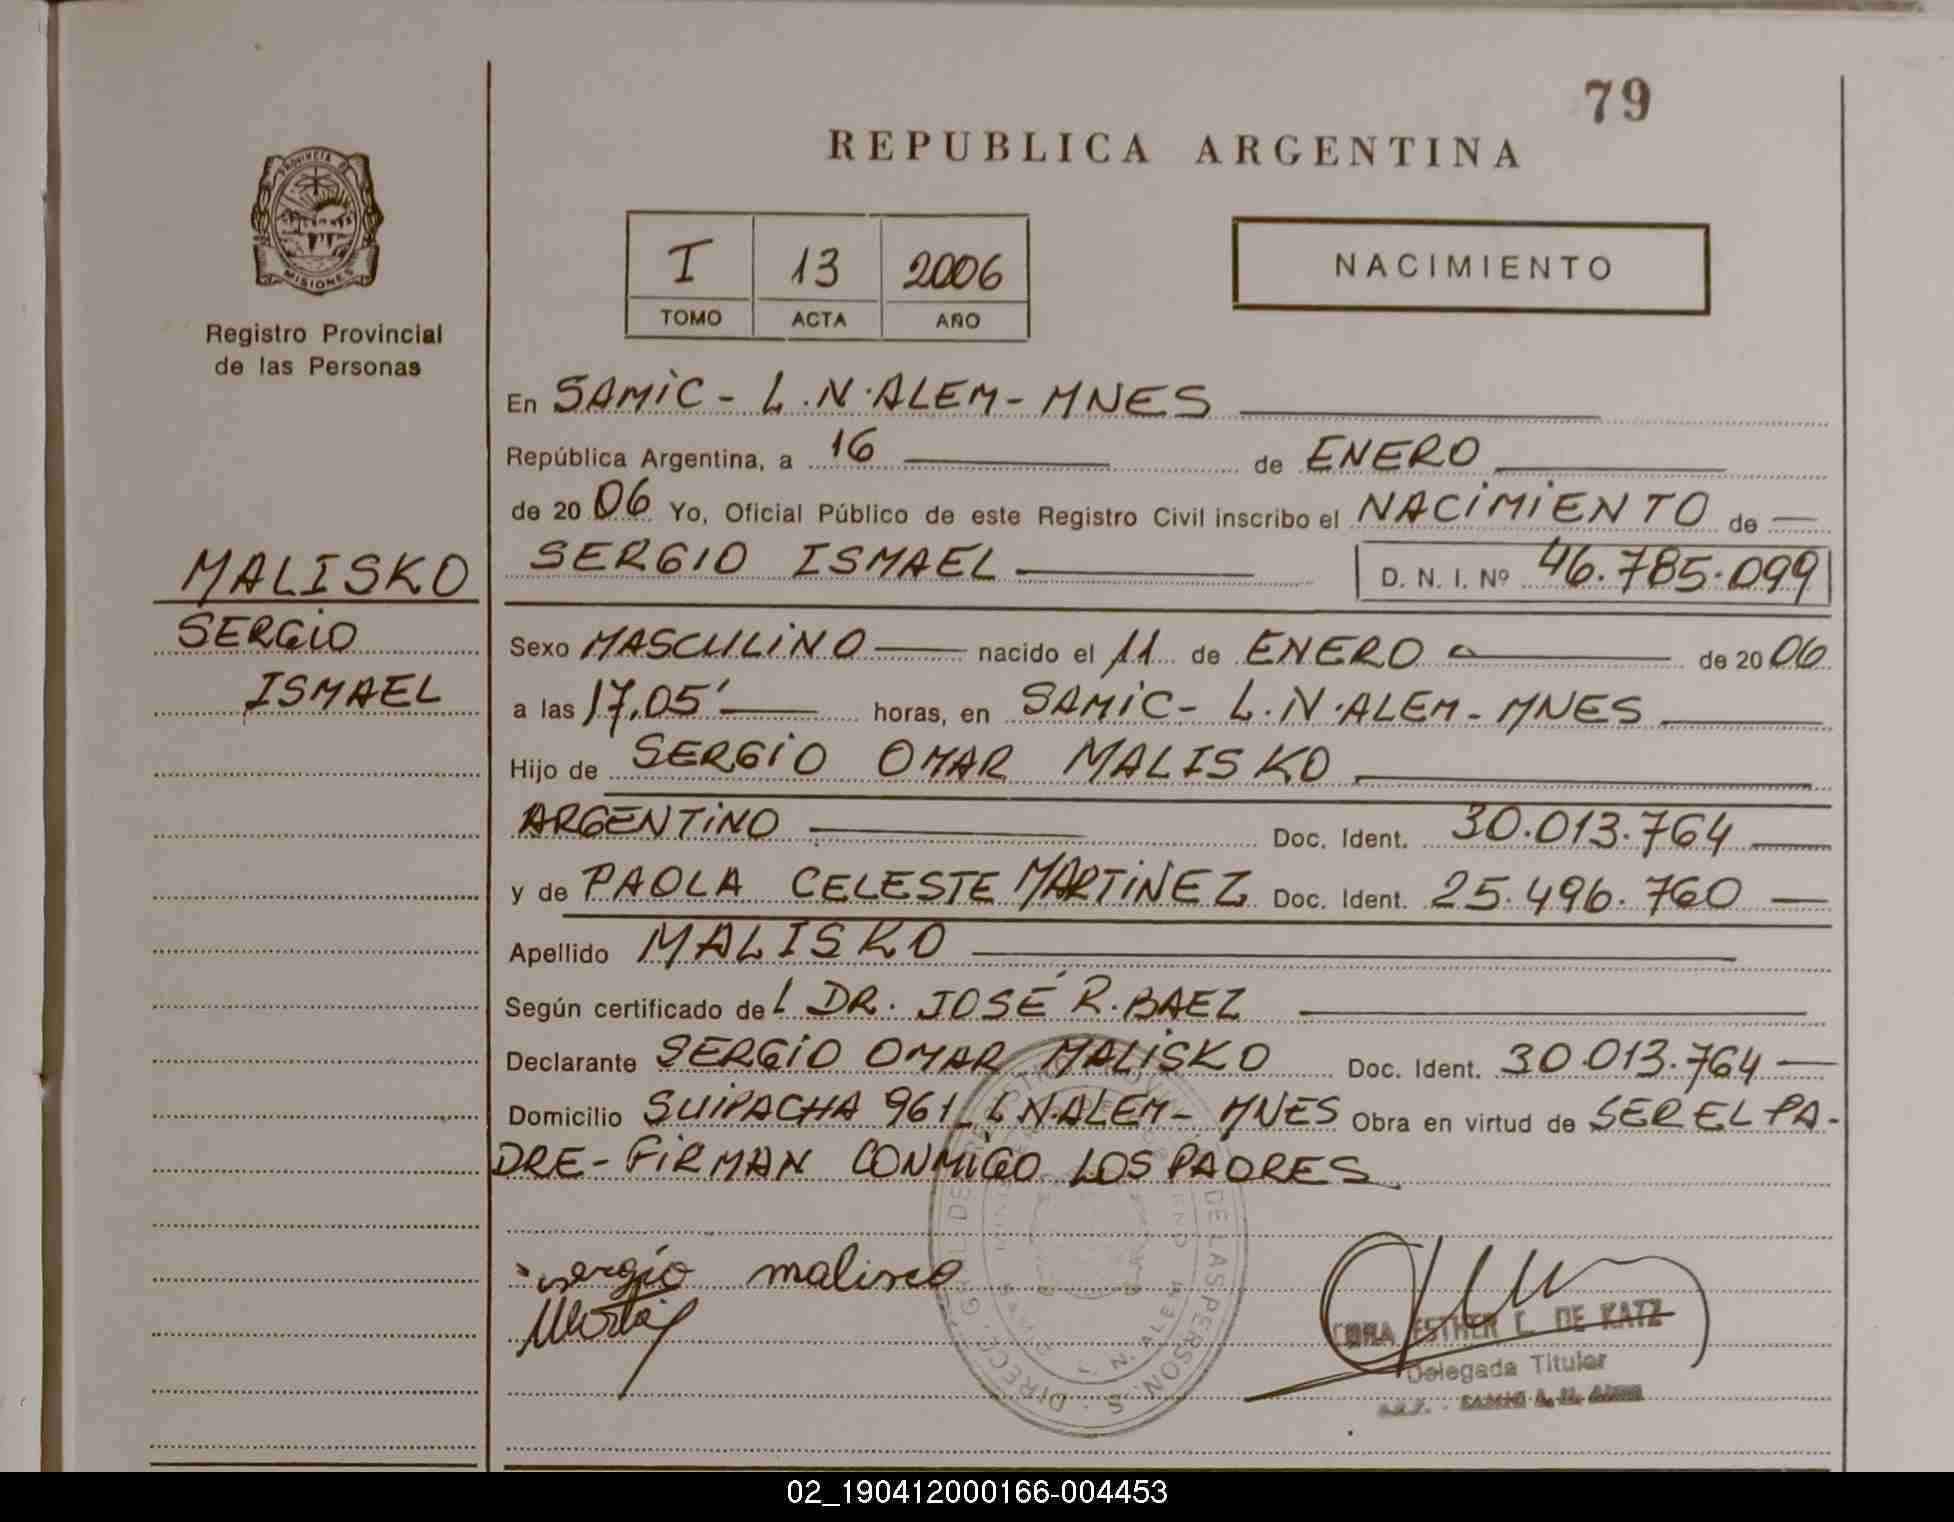 79
REPUBLICA ARGENTINA
PROVINCIA DE
MISIONES
Registro Provincial
de las Personas
I 13 2006
TOMO ACTA AÑO
NACIMIENTO
En SAMIC - L.N.ALEM - MNES
República Argentina, a 16 de ENERO
de 2006 Yo, Oficial Público de este Registro Civil inscribo el NACIMIENTO de
MALISKO
SERGIO
ISMAEL
SERGIO ISMAEL D. N. I. Nº 46.785.099
Sexo MASCULINO nacido el 11 de ENERO de 2006
a las 17,05' horas, en SAMIC - L.N.ALEM - MNES
Hijo de SERGIO OMAR MALISKO
ARGENTINO Doc. Ident. 30.013.764
y de PAOLA CELESTE MARTINEZ Doc. Ident. 25.496.760
Apellido MALISKO
Según certificado del DR. JOSÉ R. BAEZ
Declarante SERGIO OMAR MALISKO Doc. Ident. 30.013.764
Domicilio SUIPACHA 961 L.N.ALEM - MNES Obra en virtud de SER EL PA-
DRE - FIRMAN CONMIGO LOS PADRES
sergio malisco
CORA ESTHER C. DE KATZ
Delegada Titular
DE LAS PERSONAS
L. N. ALEM
02_190412000166-004453